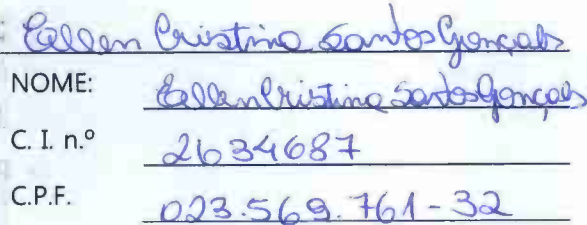 Eellen Cristina Santos Gonçals
NOME: Eellen Cristina Santos Gonçals
C. I. n.º 2634687
C.P.F. 023.569.761-32